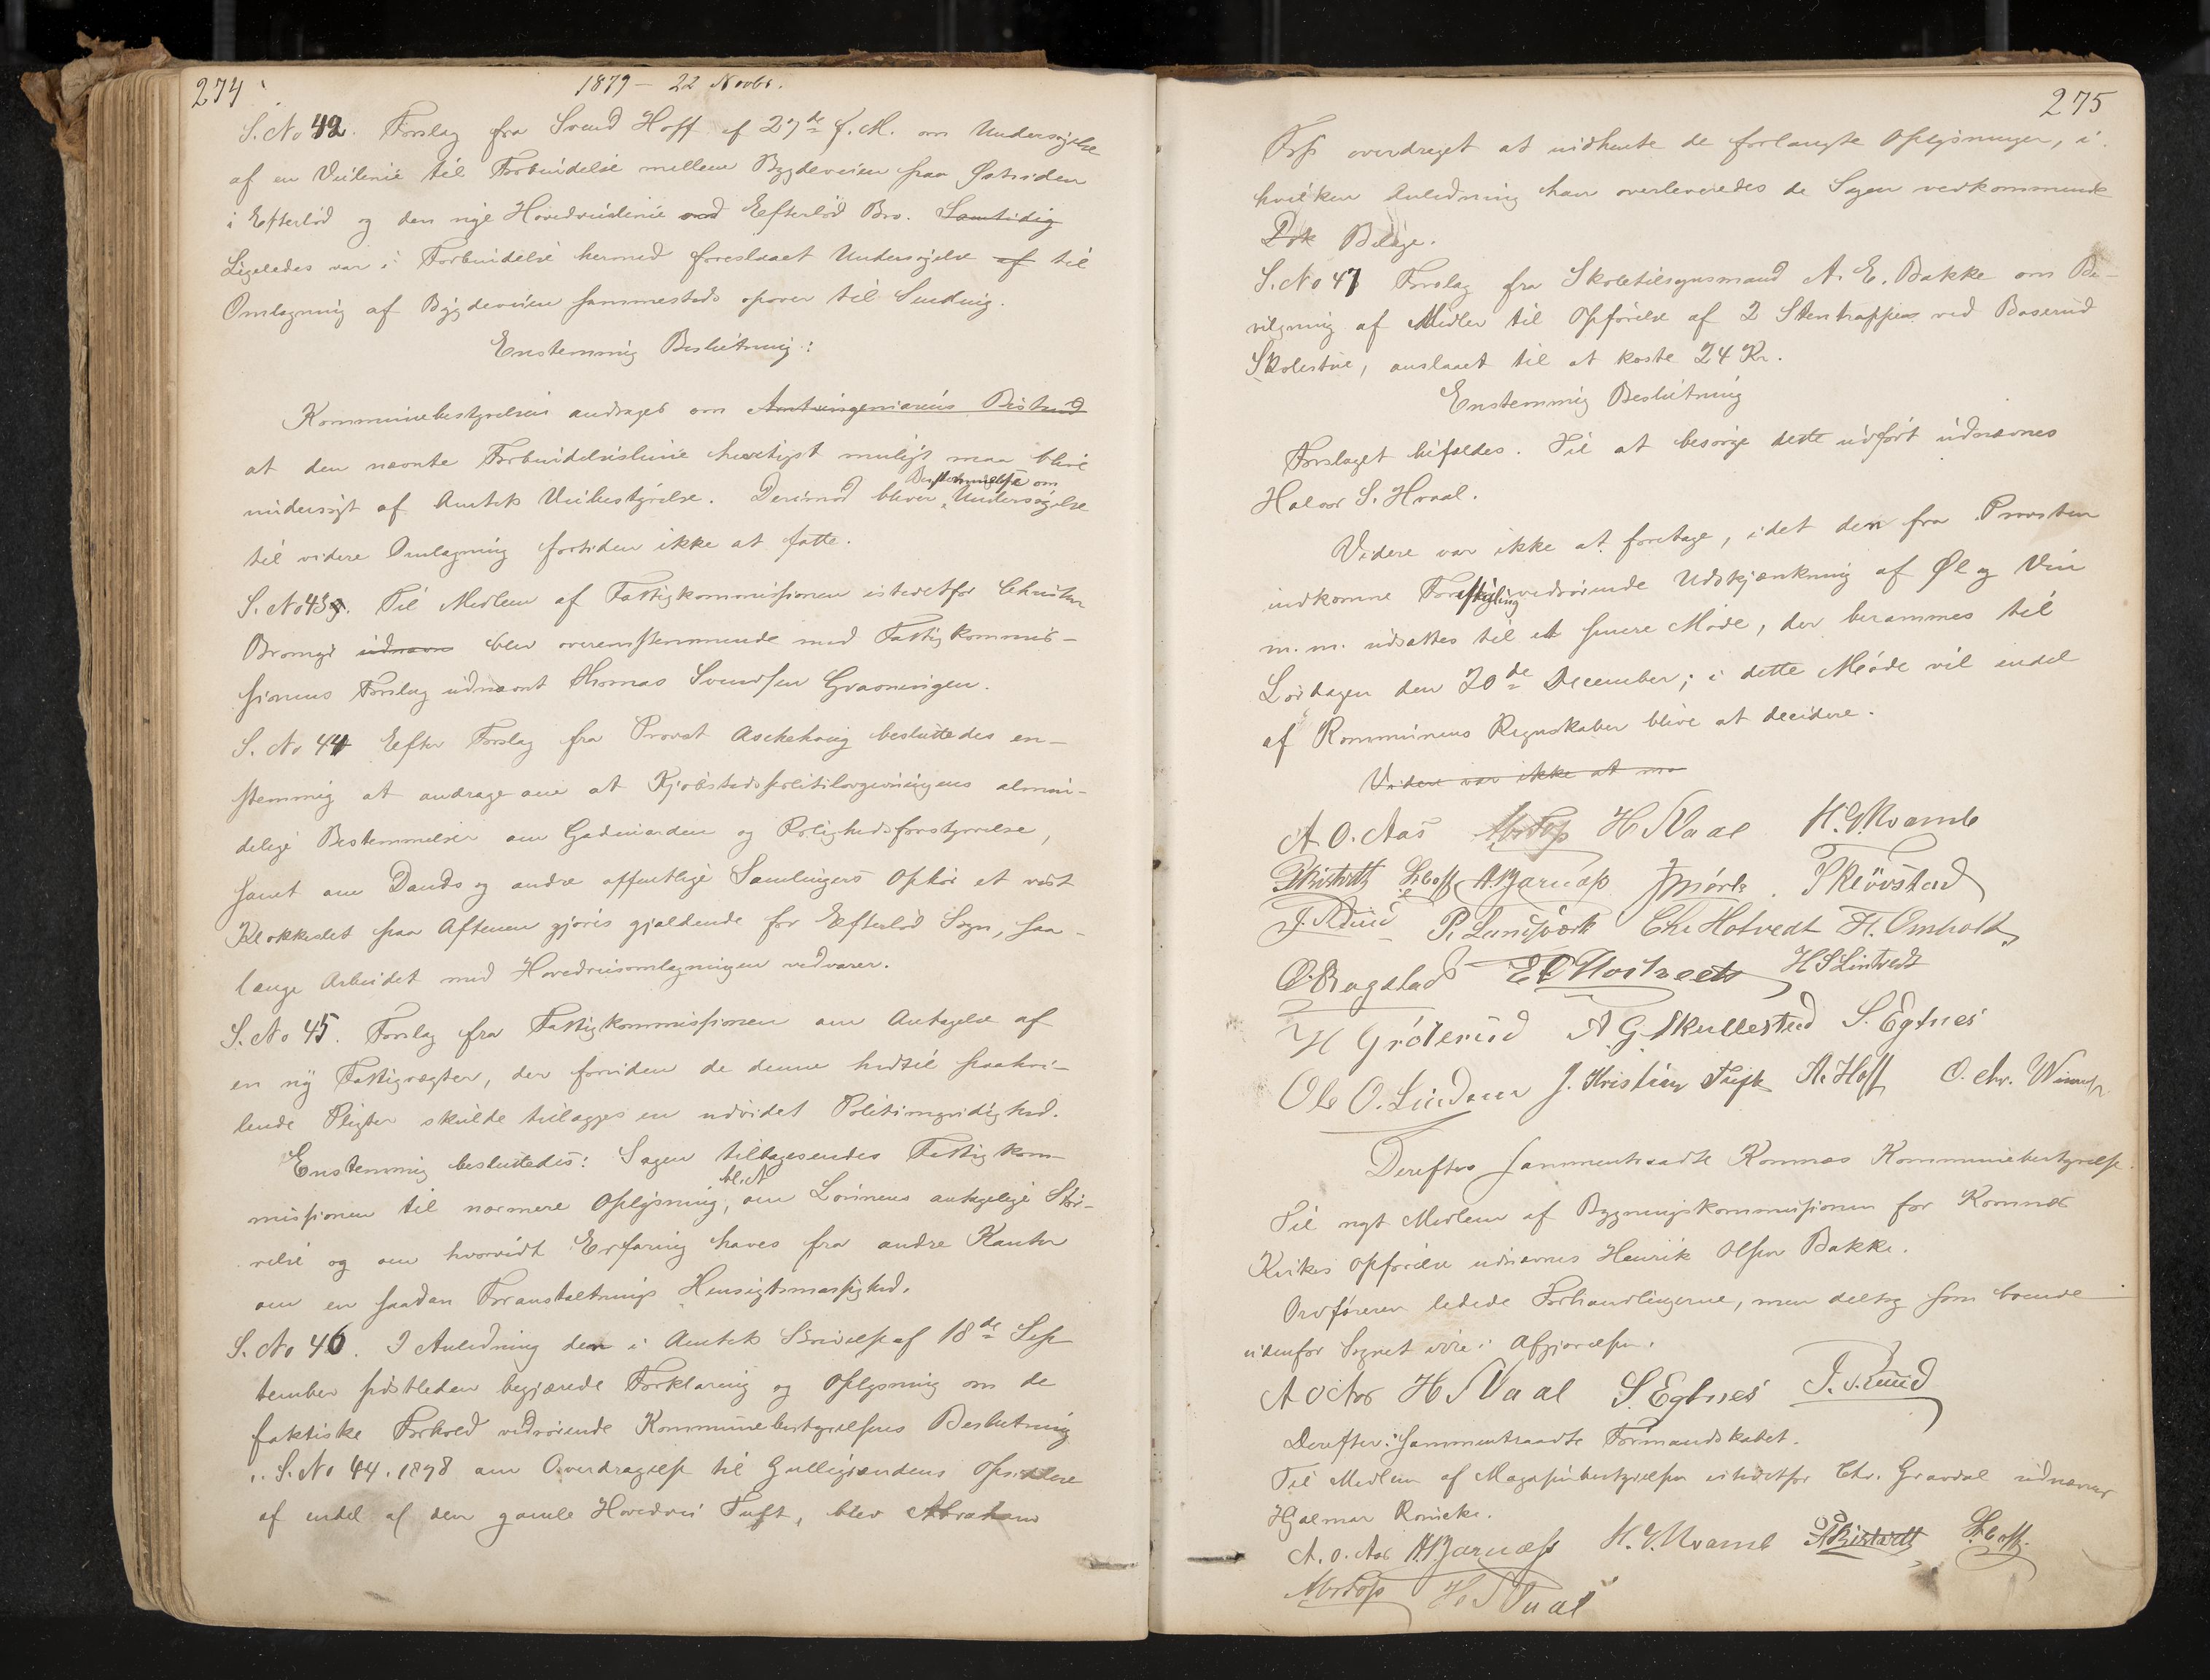 274
1879 – 22 Novbr.
S. No 42. Forslag fra Svend Hoff af 27de f. M. om Undersøgelse
af en Veilinie til Forbindelse mellem Bygdeveien paa Østsiden
i Efterlød og den nye Hovedveilinie ved Efterløds Bro. Samtidig
Ligeledes var i Forbindelse hermed foreslaaet Undersøgelse af til
Omlægning af Bygdeveien sammesteds opover til
Enstemmig Beslutning:
Kommunebestyrelsen andrager om Amtsingeniørens Bistand
at den nævnte Forbindelseslinie hurtigst muligt maa blive
undersøgt af Amtets Veibestyrelse. Derimod bliver Bestemmelse om Undersøgelse
til videre Omlægning fortiden ikke at fatte.
S. No 43. Til Medlem af Fattigkommissionen istedetfor Christen
udnævn blev overensstemmende med Fattigkommis-
sionens Forslag udnævnt Thomas Svendsen Graoningen.
S. No 44 Efter Forslag fra Provst Aschehoug besluttedes en-
stemmig at andrage om at Kjøbstadspolitilovgivningens almin-
delige Bestemmelser om Gadeuorden og Rolighedsforstyrrelse,
samt om Dands og andre offentlige Samlingers Ophør et vist
Klokkeslet paa Aftenen gjøres gjældende for Efterløds Sogn, saa-
længe Arbeidet med Hovedveiomlægningen vedvarer.
S. No 45. Forslag fra Fattigkommissionen om Antagelse af
en ny Fattigvægter, der foruden de denne hidtil paahvi-
lende Pligter skulde tillægges en udvidet Politimyndighed.
Enstemmig besluttedes: Sagen tilbagesendes Fattigkom-
missionen til nærmere Oplysning, bl. A. om Lønnens antagelige Stør-
relse og om hvorvidt Erfaring haves fra andre Kanter
om en saadan Foranstaltnings Hensigtsmæssighed.
S. No 46. I Anledning den i Amtets Skrivelse af 18de Sep-
tember sidstleden begjærede Forklaring og Oplysning om de
faktiske Forhold vedrørende Kommunebestyrelsens Beslutning
i S. No 44. 1878 om Overdragelse til Opsiddere
af endel af den gamle Hovedvei Tuft, blev Abraham
275
Foss overdraget at indhente de forlangte Oplysninger, i
hvilken Anledning han overleveredes de Sagen vedkommende
Dok Bilage.
S. No 47 Forslag fra Skoletilsynsmand A. E. Bakke om Be-
vilgning af Midler til Opførelse af 2 Stentrapper ved Baserud
Skolestue, anslaaet til at koste 24 Kr.
Enstemmig Beslutning
Forslaget bifaldes. Til at besørge dette udført udnævnes
Halvor S. Hvaal.
Videre var ikke at foretage, idet den fra Provsten
indkomne Forestilling vedrørende Udskjænkning af Øl og Vin
m. m. udsattes til et senere Møde, der berammes til
Lørdagen den 20de December; i dette Møde vil endel
af Kommunens Regnskaber blive at decidere.
Videre var ikke at
A. O. Aas AbrFoss H S Vaal H. G. Kvamb
S. Hoff A. Bjarnaas J Mørk T Kløvstad
J. Ruud P. Lundsvæk Chr Hotvedt H. Omholt
O. Bragstad E C Hostvedt H S Lintvedt
H Gróterud A. G. Skullestad S. Egtnes
Ole O. Lindem J. Kristian Tufte A. Hoff O. Chr.
Derefter sammentraadte Komnæs Kommunebestyrelse.
Til nyt Medlem af Bygningskommissionen for Komnæs
Kirkes Opførelse udnævnes Henrik Olsen Bakke.
Ordføreren ledede Forhandlingerne, men deltog som boende
udenfor Sognet ikke i Afgjørelsen.
A O Aas H S Vaal S. Egtnes J. Ruud
Derefter sammentraadte Formandskabet.
Til Medlem af Magasinbestyrelsen istedetfor Chr. Gravdal udnævnes
Hjalmar
A. O. Aas A. Bjarnaas H. G. Kvamb S. Hoff.
AbrFoss H S Vaal